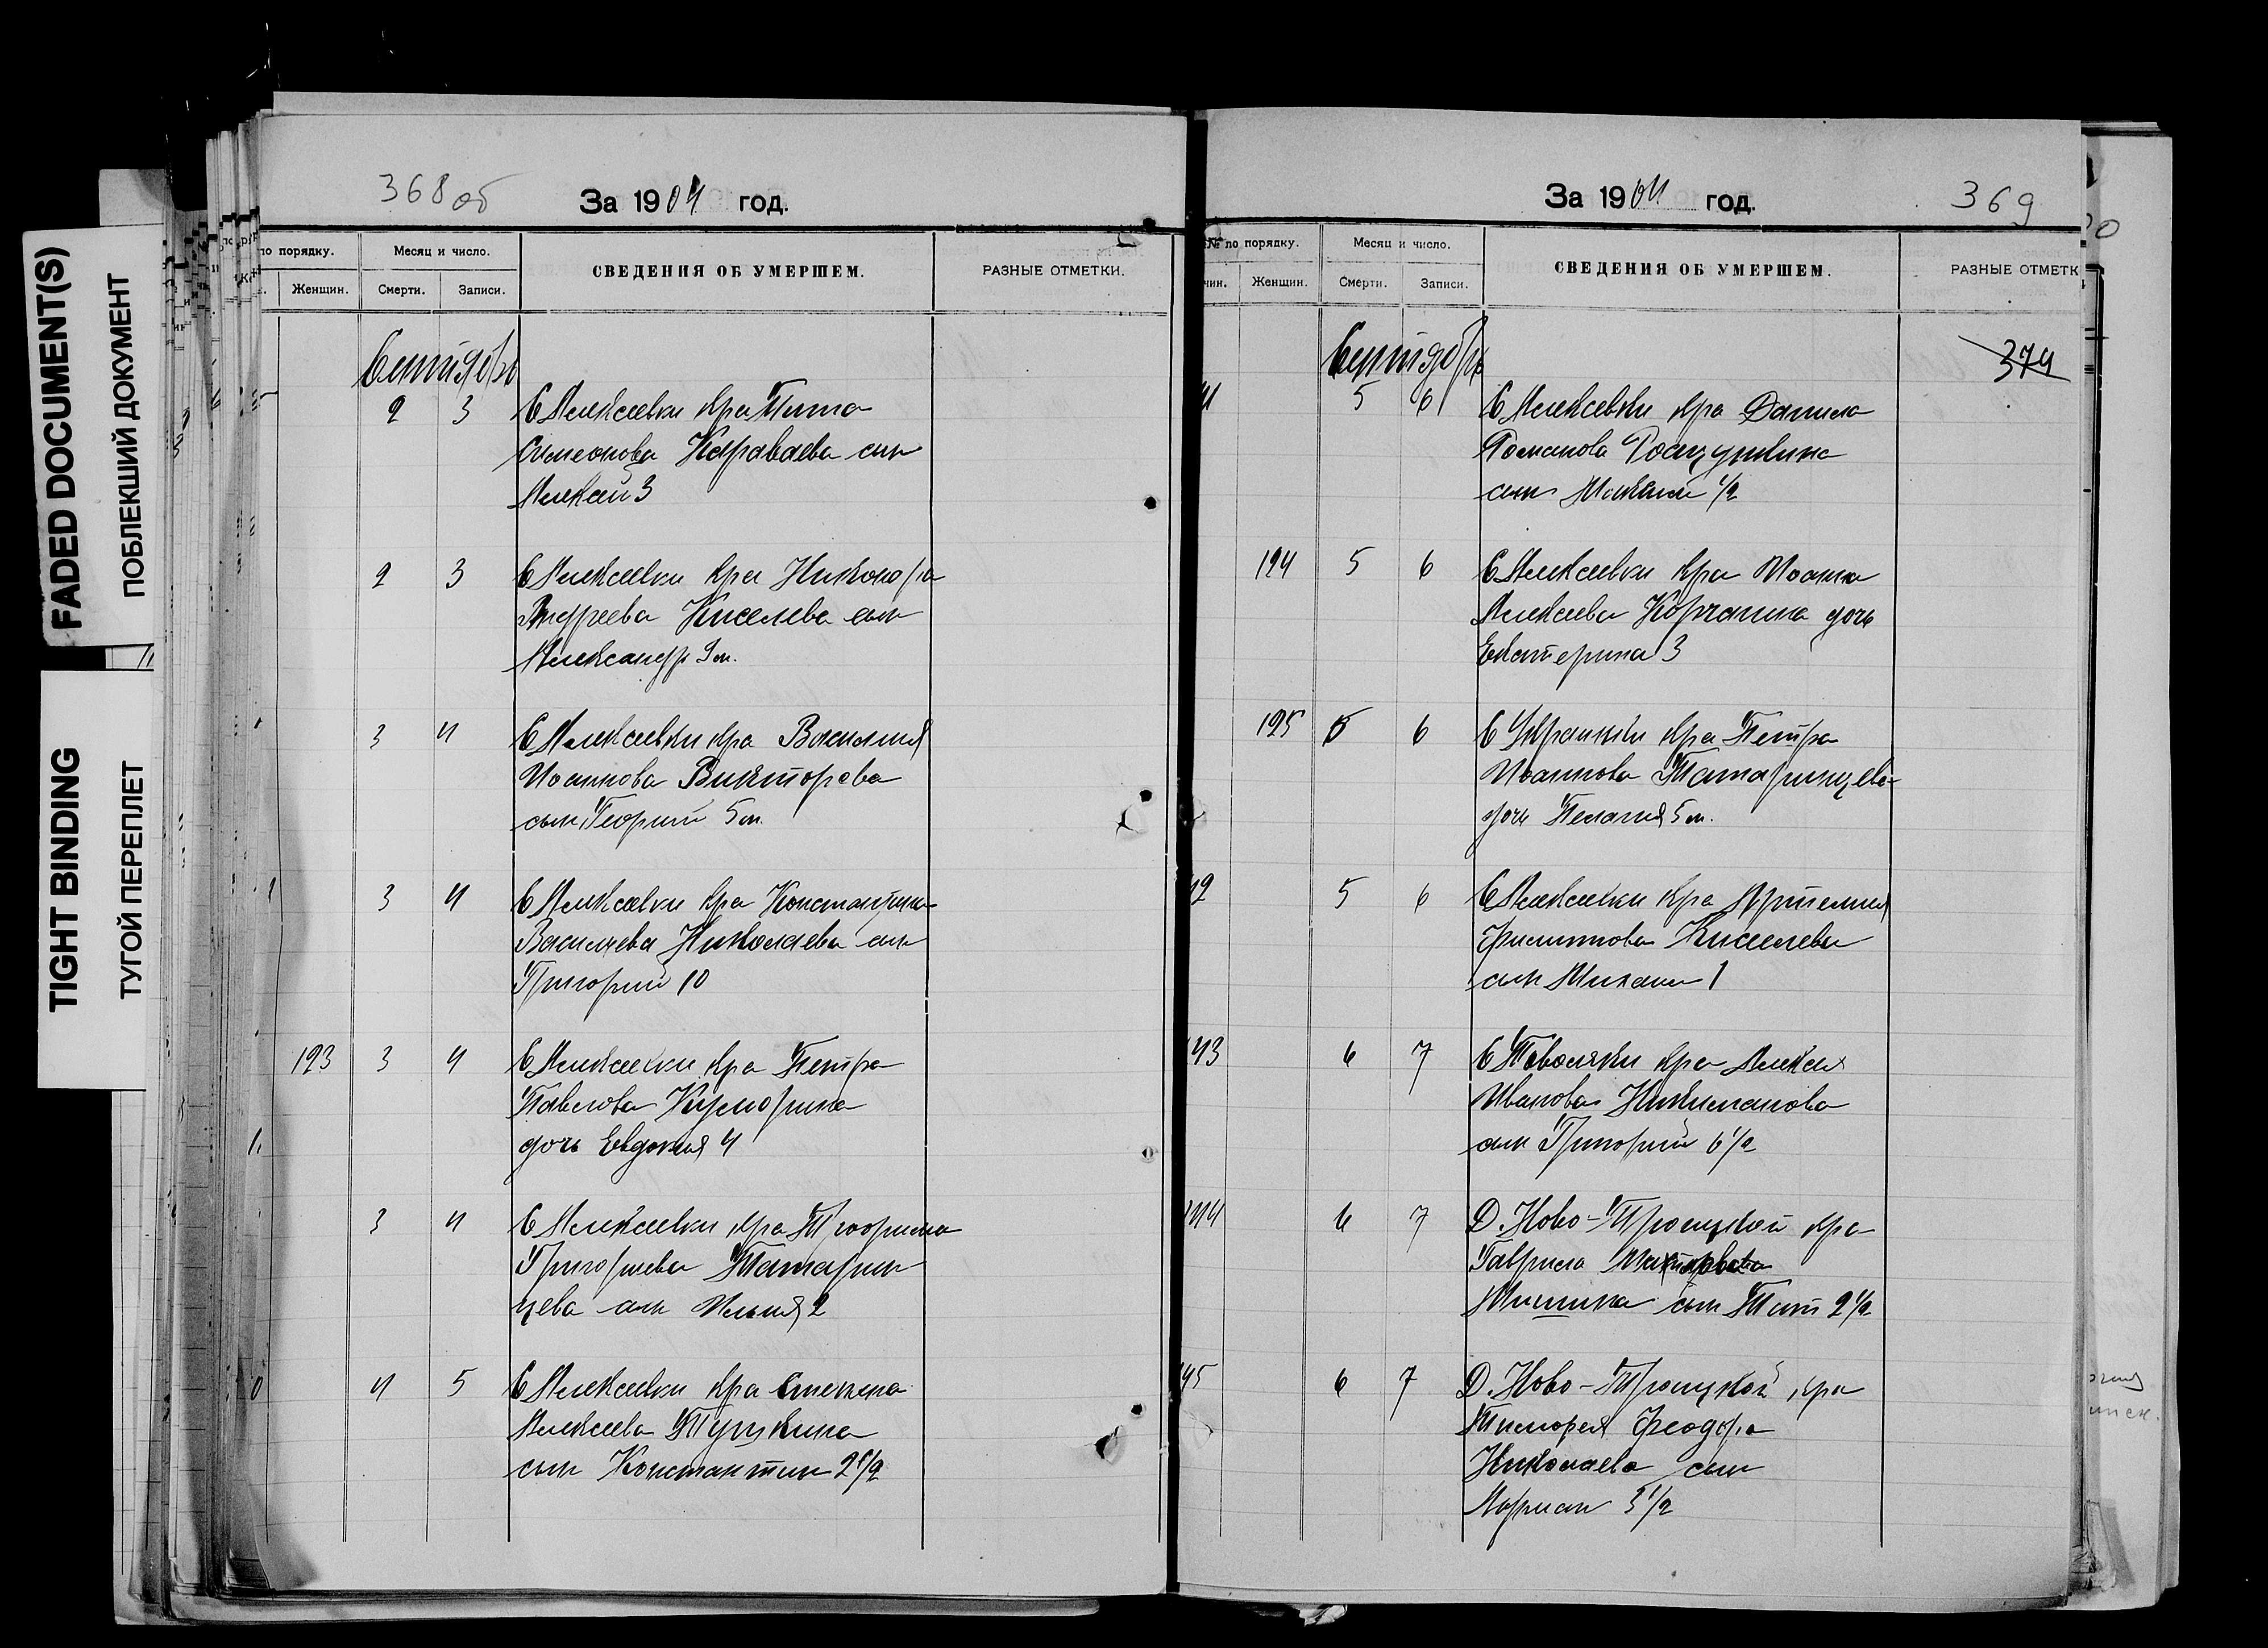 FADED DOCUMENT(S)
ПОБЛЕКШИЙ ДОКУМЕНТ
TIGHT BINDING
ТУГОЙ ПЕРЕПЛЕТ
368 об
За 1904 год.
по порядку.
Месяц и число.
СВЕДЕНИЯ ОБ УМЕРШЕМ.
РАЗНЫЕ ОТМЕТКИ.
Женщин.
Смерти.
Записи.
Сентябрь
2 3 С Алексеевки кра Тита
Симеонова Караваева сын
Алексей 3
2 3 С Алексеевки кра Никонора
Андреева Киселева сын
Александр 9 м.
3 4 С Алексеевки кра Василия
Иоаннова Викторова
сын Георгий 5 м.
3 4 С Алексеевки кра Константина
Васильева Николаева сын
Григорий 10
123 3 4 С Алексеевки кра Петра
Павлова
дочь Евдокия 4
3 4 С Алексеевки кра Трофима
Григорьева Татарин
цева сын Илья 2
4 5 С Алексеевки кра Степана
Алексеева
сын Константин 2 1/2
За 1904 год.
369
№ по порядку.
Месяц и число.
СВЕДЕНИЯ ОБ УМЕРШЕМ.
РАЗНЫЕ ОТМЕТК
Женщин.
Смерти.
Записи.
Сентябрь
374
5 6 С Алексеевки кра Данила
Романова
сын 1/2
124 5 6 С Алексеевки кра Иоанна
Алексеева Корчагина дочь
Екатерина 3
125 5 6 С Украинки кра Петра
Иоаннова Татаринцева
дочь Пелагия 5 м.
5 6 С Алексеевки кра Артемия
Филиппова Киселева
сын Михаил 1
43 6 7 С кра Алексея
Иванова
сын Григорий 6 1/2
144 6 7 Д. Ново-Троицкой кра
Гаврила
Мишина сын Тит 2 1/2
45 6 7 Д. Ново-Троицкой кра
Тимофея Феодора
Николаева сын
3 1/2